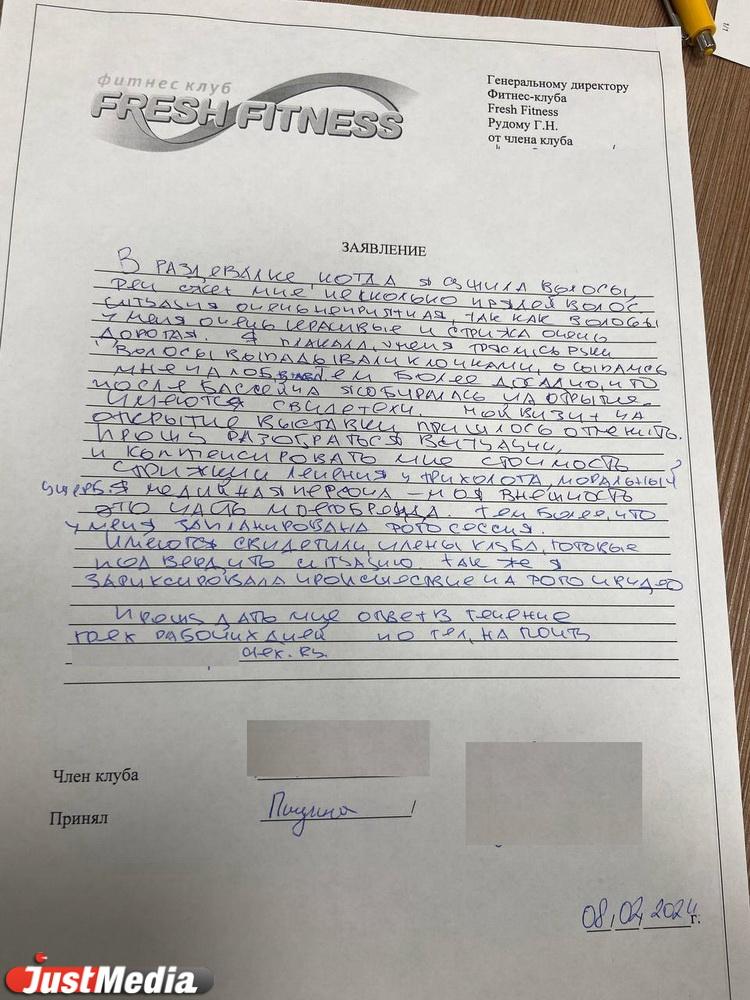 фитнес клуб
FRESH FITNESS
Генеральному директору
Фитнес-клуба
Fresh Fitness
Рудому Г.Н.
от члена клуба
ЗАЯВЛЕНИЕ
В раздевалке, когда я сушила волосы
фен сжег мне несколько прядей волос
ситуация очень неприятная, так как волосы
у меня очень красивые и стрижка очень
дорогая. Я плакала, у меня тряслись руки
волосы выпадывали клочками, осыпались
мне на лоб, тем более досадно, что
после бассейна я собиралась на открытие.
Имеются свидетели. Мой визит на
открытие выставки пришлось отменить.
Прошу разобраться в ситуации,
и компенсировать мне стоимость
стрижки лечения у трихолога, моральный
ущерб. Я медийная персона – моя внешность
это часть моего бренда. Тем более, что
у меня запланирована фотосессия.
Имеются свидетили, члены клуба, готовые
подтвердить ситуацию. Так же я
зафиксировала происшествие на фото и видео
Прошу дать мне ответ в течение
трех рабочих дней по тел, на почту
Член клуба
Принял
08.02.2024 г.
JustMedia